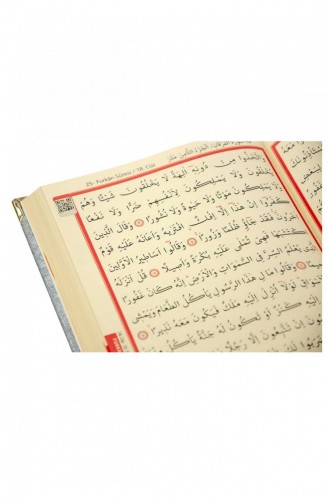 25- Furkân Sûresi / 18. Cüz
وَاتَّخَذُوا مِنْ دُونِهِ اٰلِهَةً لَا يَخْلُقُونَ شَيْـًٔا وَهُمْ
يُخْلَقُونَ وَلَا يَمْلِكُونَ لِاَنْفُسِهِمْ ضَرًّا وَلَا نَفْعًا
وَلَا يَمْلِكُونَ مَوْتًا وَلَا حَيٰوةً وَلَا نُشُورًا ٣ وَقَالَ الَّذِينَ
كَفَرُوا اِنْ هٰذَا اِلَّا اِفْكٌ افْتَرٰيهُ وَاَعَانَهُ عَلَيْهِ قَوْمٌ
اٰخَرُونَ فَقَدْ جَاؤُ ظُلْمًا وَزُورًا ٤ وَقَالُوا اَسَاطِيرُ الْاَوَّلِينَ
اكْتَتَبَهَا فَهِيَ تُمْلٰى عَلَيْهِ بُكْرَةً وَاَصِيلًا ٥ قُلْ اَنْزَلَهُ
الَّذِي يَعْلَمُ السِّرَّ فِي السَّمٰوَاتِ وَالْاَرْضِ اِنَّهُ كَانَ غَفُورًا
وَقَالُوا مَالِ هٰذَا الرَّسُولِ يَأْكُلُ الطَّعَامَ وَيَمْشِي
لَوْلَا اُنْزِلَ اِلَيْهِ مَلَكٌ فَيَكُونَ مَعَهُ نَذِيرًا ٧
اِلَيْهِ كَنْزٌ اَوْ تَكُونُ لَهُ جَنَّةٌ يَأْكُلُ
اِنْ تَتَّبِعُونَ اِلَّا رَجُلًا